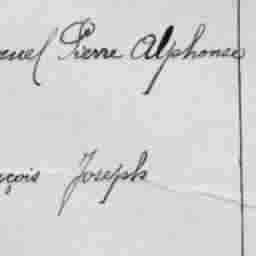 Pierre Alphonse
çois Joseph